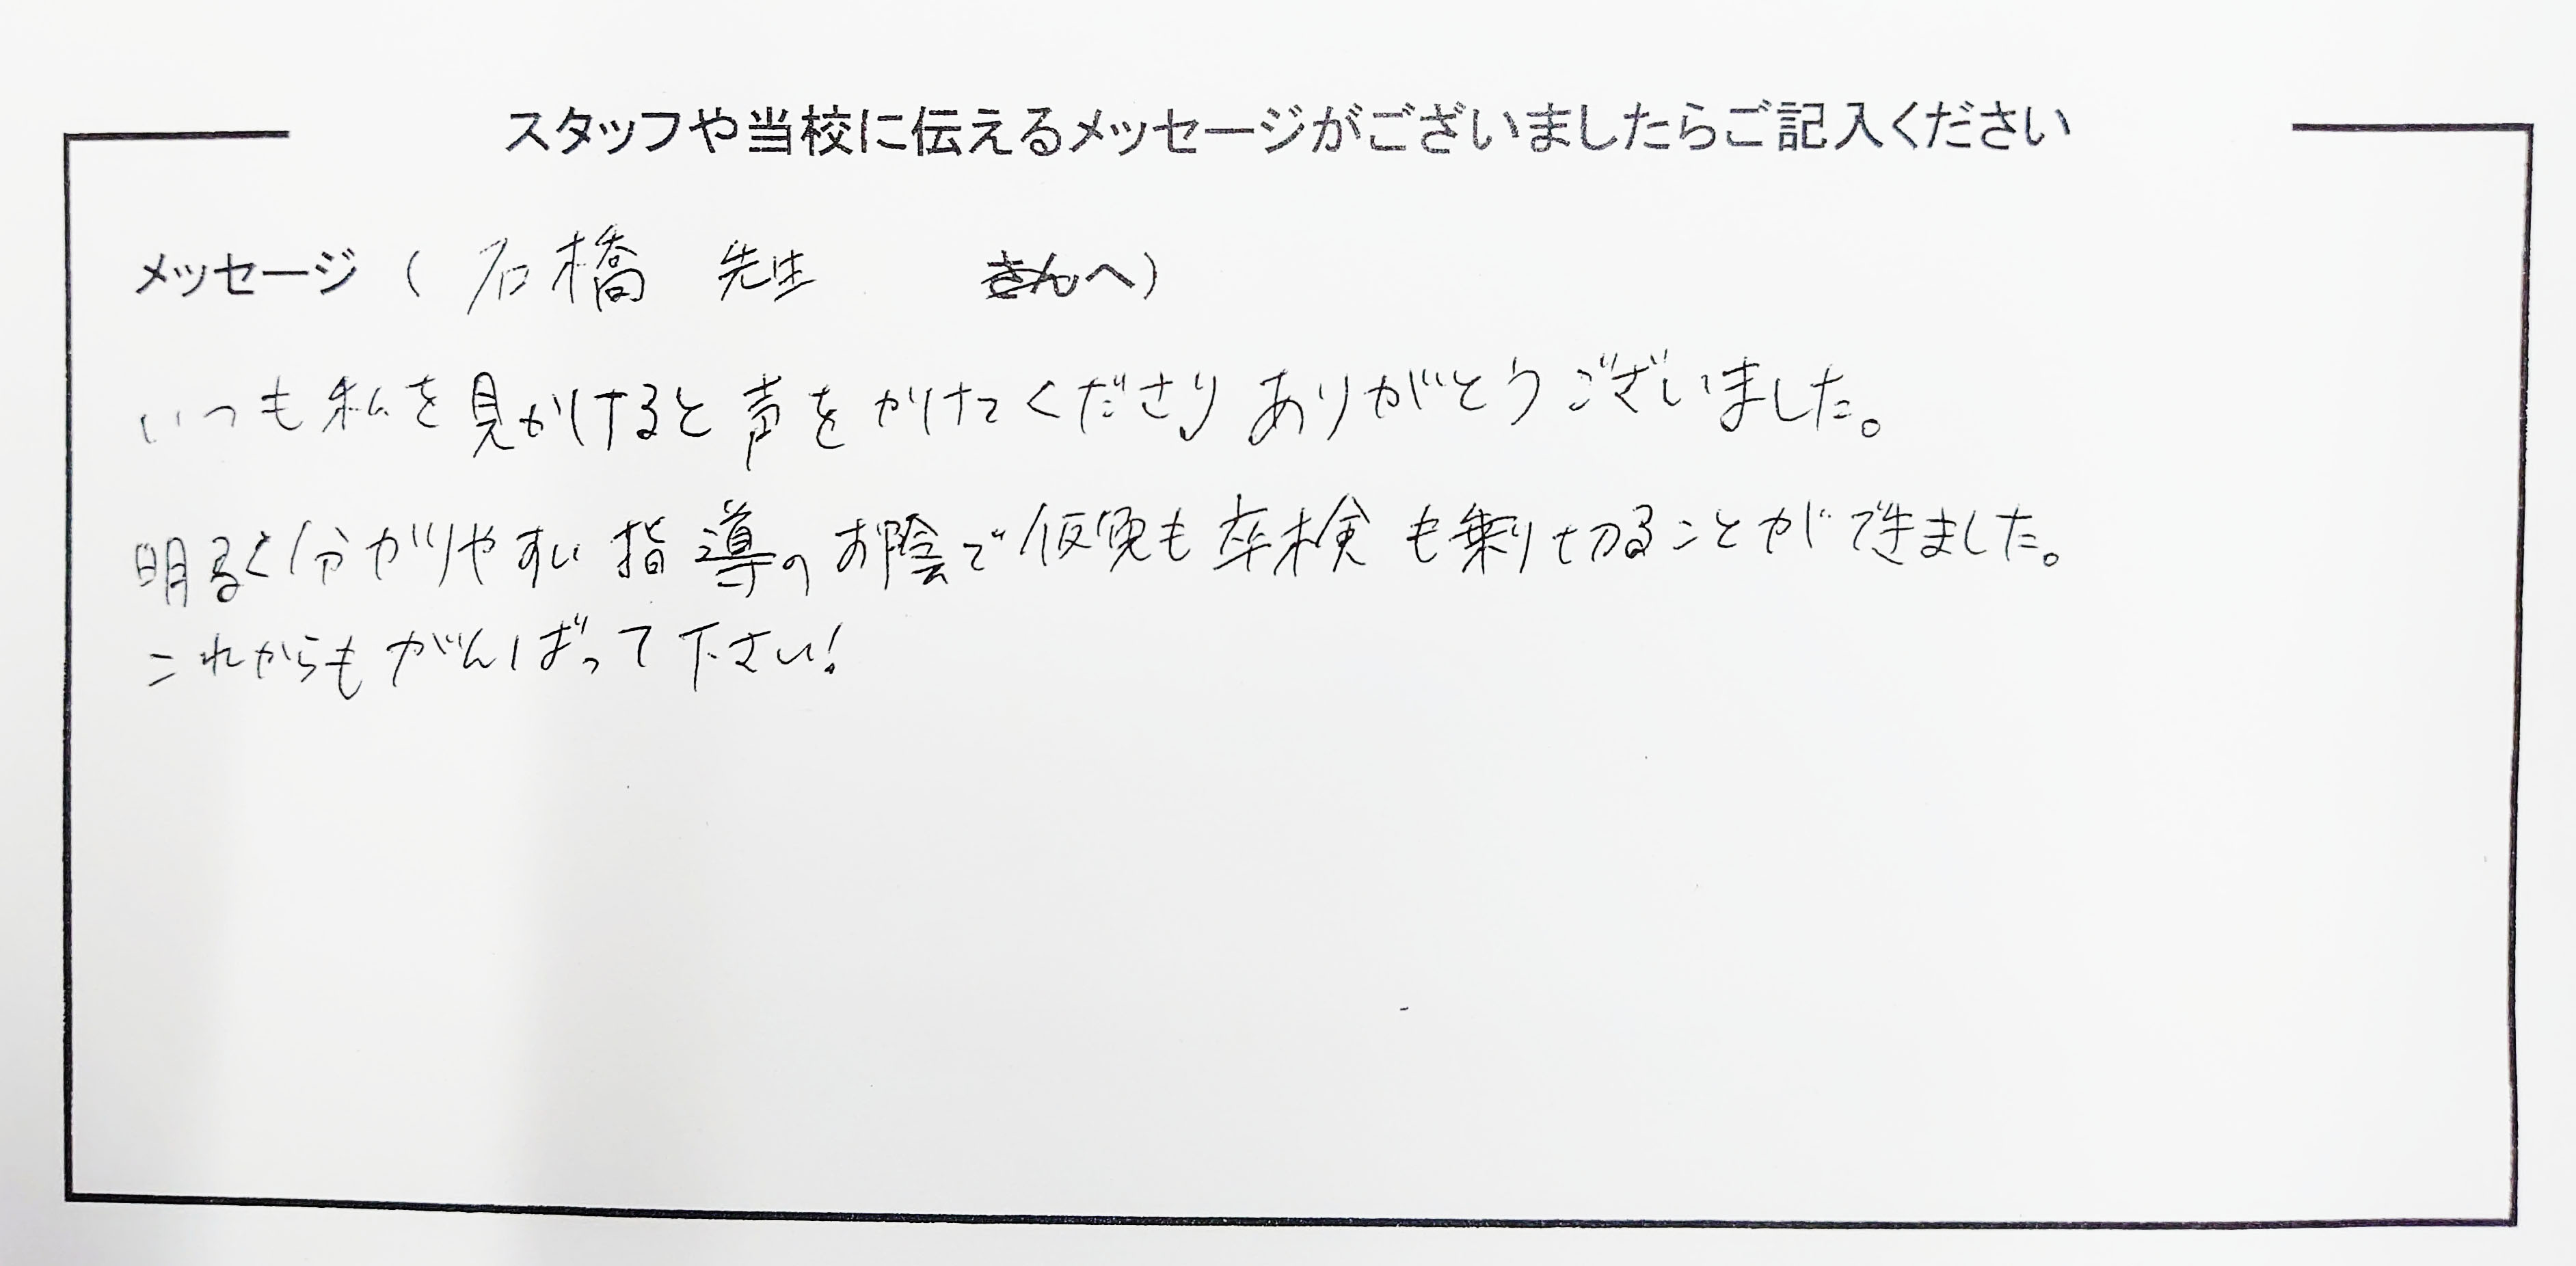 スタッフや当校に伝えるメッセージがございましたらご記入ください
メッセージ ( 石橋 先生 さんへ)
いつも私を見かけると声をかけてくださりありがとうございました。
明るく分かりやすい指導のお陰で仮免も卒検も乗り切ることができました。
これからもがんばって下さい!